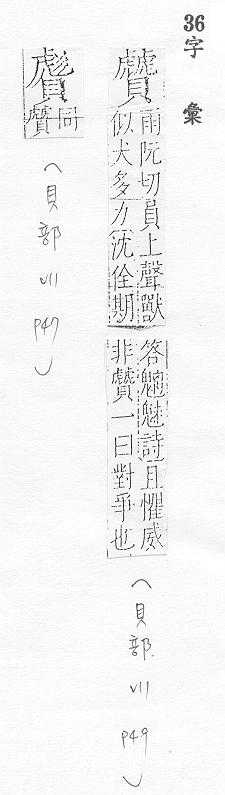 36字彙
贙
雨阮切員上聲獸
似犬多力沈佺期
答魍魅詩且懼威
非贙一曰對爭也
(貝部 VII P49)
同
贙
(貝部 VII P47)